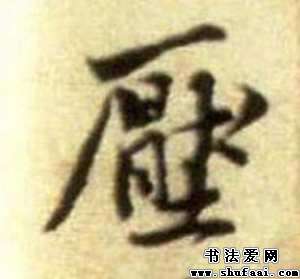 壓
书法爱网
www.shufaai.com